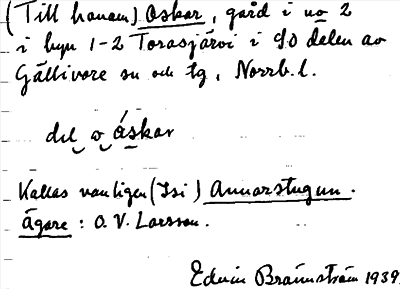 (Till hanam) Oskar, gård i no 2
i byn 1-2 Torasjärvi i SO delen av
Gällivare sn och tg, Norrb. l.
del o áskar
Kallas vanligen (Isi) Annarstugun.
Ägare: O. V. Larsson.
Edvin Brännström 1939